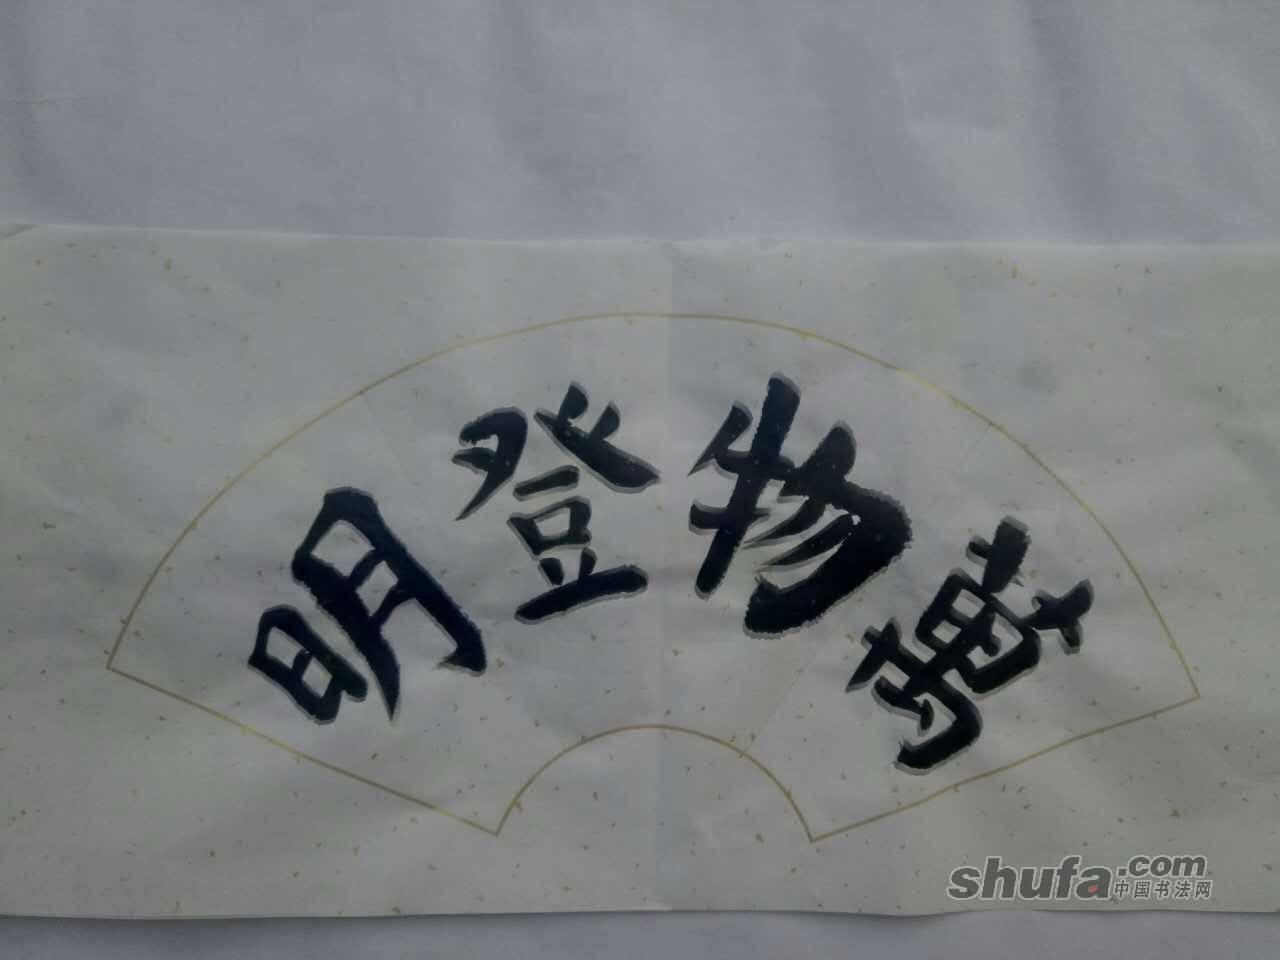 萬物登明
shufa.com
中国书法网